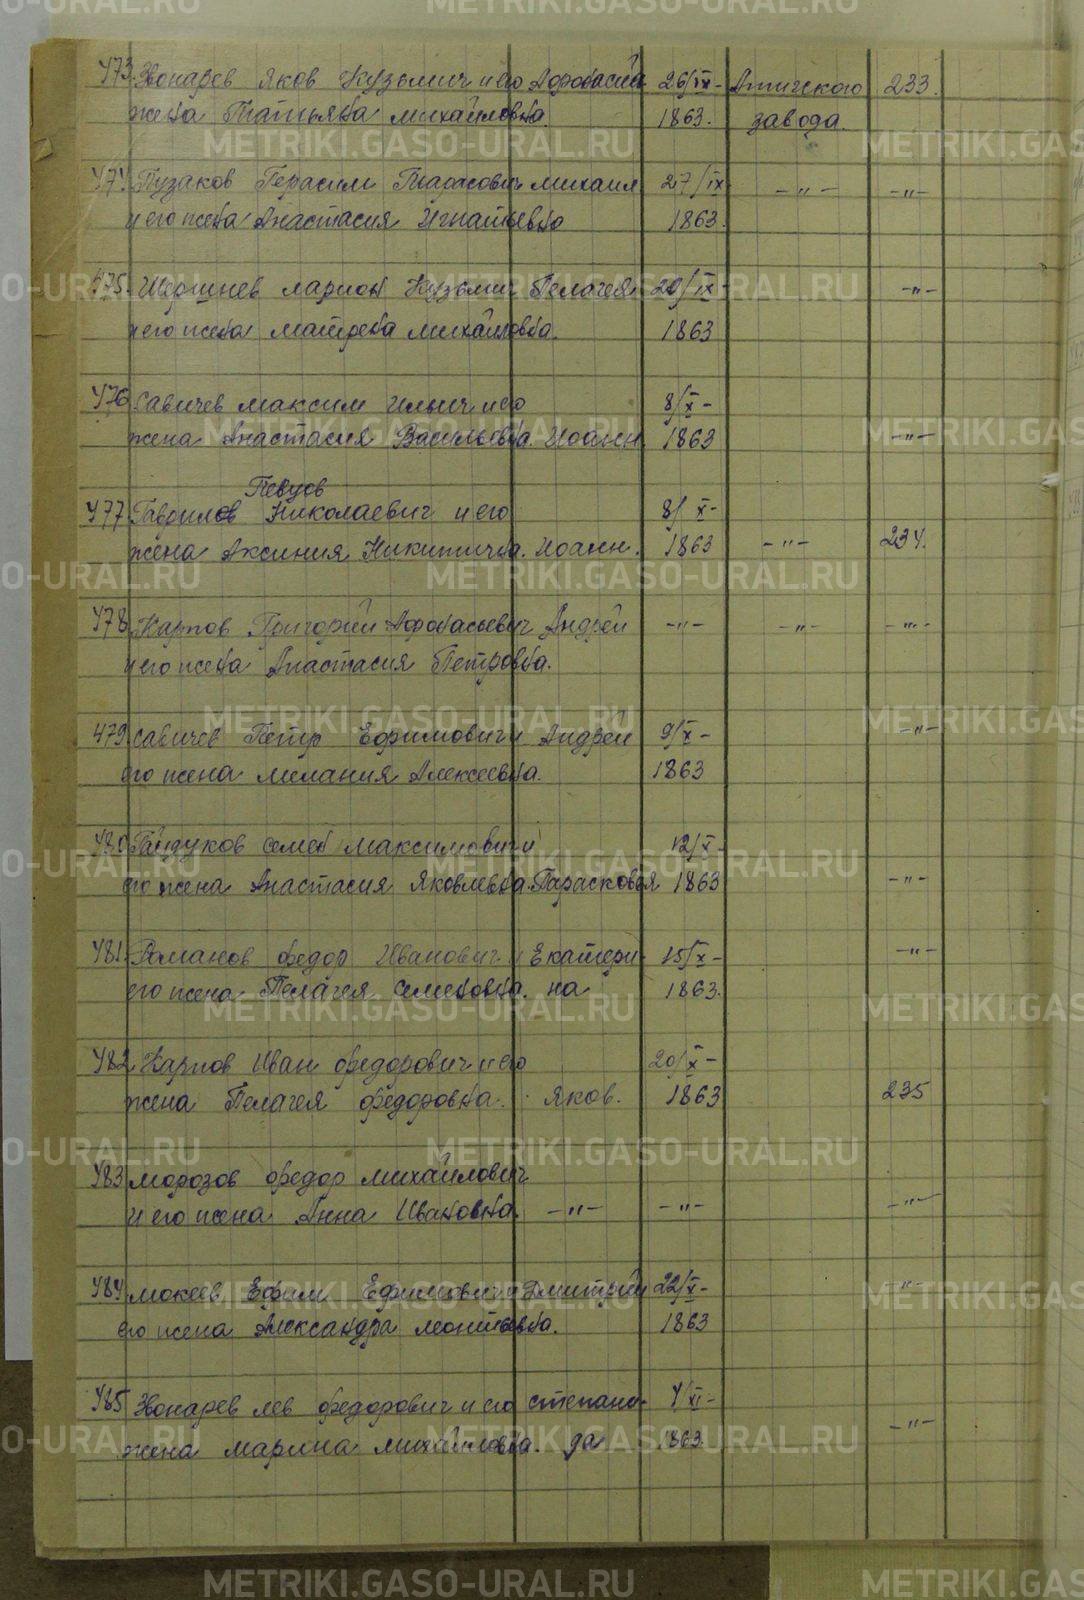 473. Звонарев Яков Кузьмич и его Афонасий 26/IX- Атигского 233.
жена Татьяна Михайловна. 1863. завода.
474. Пузаков Герасим Тарасович Михаил 27/IX -"- -"-
и его жена Анастасия Игнатьевна 1863.
475. Шершнев Ларион Кузьмич Пелагея 29/IX- -"-
и его жена Матрена Михайловна. 1863
476. Савичев Максим Ильич и его 8/X-
жена Анастасия Васильевна. Иоанн 1863 -"-
Певцов
477. Гаврилов Николаевич и его 8/X-
жена Аксиния Никитична. Иоанн. 1863 -"- 234.
478. Карпов Григорий Афонасьевич Андрей -"- -"- -"-
и его жена Анастасия Петровна.
479. Савичев Петр Ефимович и Андрей 9/X- -"-
его жена Мелания Алексеевна. 1863
480. Гандуков Семен Максимович и 12/X-
его жена Анастасия Яковлевна. Парасковья 1863 -"-
481. Романов Федор Иванович и Екатери 15/X- -"-
его жена Пелагея Семеновна. на 1863.
482. Карпов Иван Федорович и его 20/X-
жена Пелагея Федоровна. Яков. 1863 235
483 Морозов Федор Михайлович
и его жена Анна Ивановна. -"- -"- -"-
484. Мокеев Ефим Ефимович и Дмитрий 22/X- -"-
его жена Александра Леонтьевна. 1863
485. Звонарев Лев Федорович и его Степани- 4/XI-
жена Марина Михайловна. да 1863. -"-
METRIKI.GASO-URAL.RU